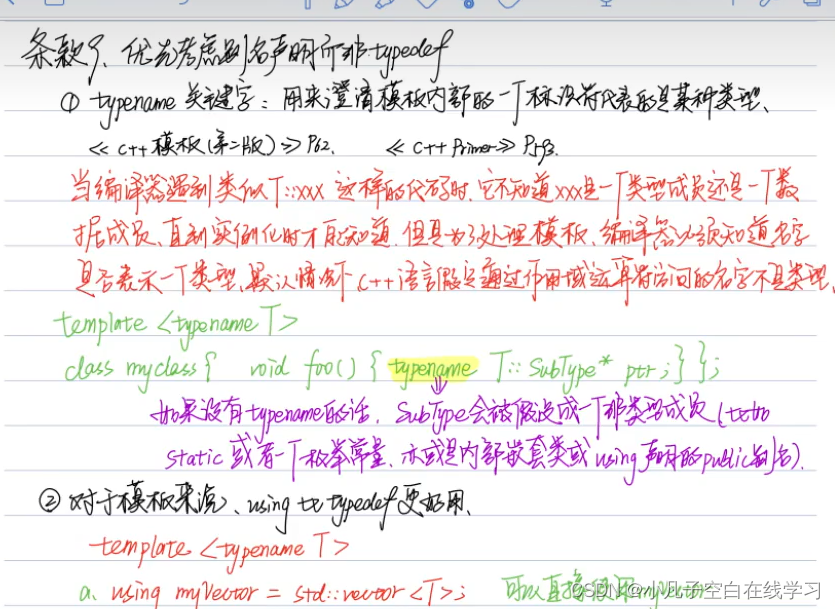 条款9、优先考虑别名声明而非typedef
① typename 关键字：用来澄清模板内部的一个标识符代表的是某种类型、
≪ C++ 模板(第二版) ≫ P62.   ≪ C++ Primer ≫ P593.
当编译器遇到类似T::xxx 这样的代码时，它不知道xxx是一个类型成员还是一个数
据成员、直到实例化时才能知道．但是为了处理模板、编译器必须知道名字
是否表示一个类型、默认情况下 C++ 语言假定通过作用域运算符访问的名字不是类型、
template <typename T>
class myclass { void foo() { typename T:: SubType* ptr; } };
如果没有typename的话，SubType会被假设成一个非类型成员(比如
static 或者一个枚举常量．亦或是内部嵌套类或using声明的public别名).
② 对于模板来说、using 比 typedef 更好用、
template <typename T>
a. using myVector = std::vector <T>; 可以直接使用myVector
CSDN @小见子空白在线学习